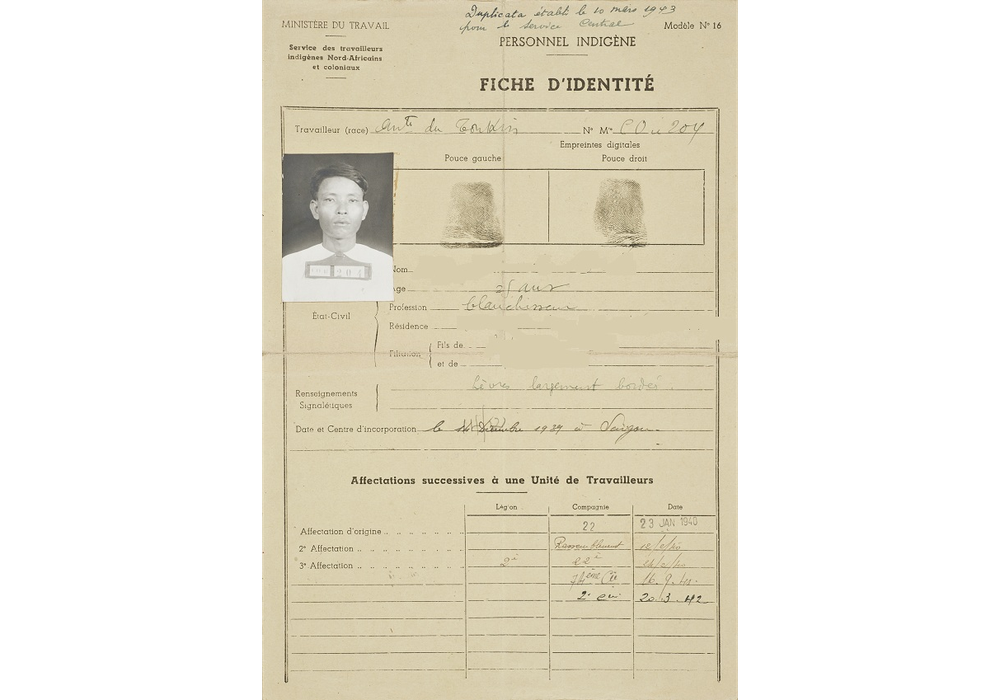 Duplicata établi le 10 mars 1943
pour le Service Central
MINISTÈRE DU TRAVAIL
Modèle N° 16
Service des travailleurs
indigènes Nord-Africains
et coloniaux
PERSONNEL INDIGÈNE
FICHE D'IDENTITÉ
Travailleur (race) du Tonkin N° Mle
Empreintes digitales
Pouce gauche Pouce droit
Nom
Age ans
Profession blanchisseur
État-Civil
Résidence
Filiation
Fils de
et de
Renseignements
Signalétiques
lèvres largement bordées
Date et Centre d'incorporation le 1939 à Saigon
Affectations successives à une Unité de Travailleurs
Légion Compagnie Date
Affectation d'origine 22 23 JAN 1940
2e Affectation Rassemblement
3e Affectation 2e 22e
16.9.41
2e Cie 20.3.42